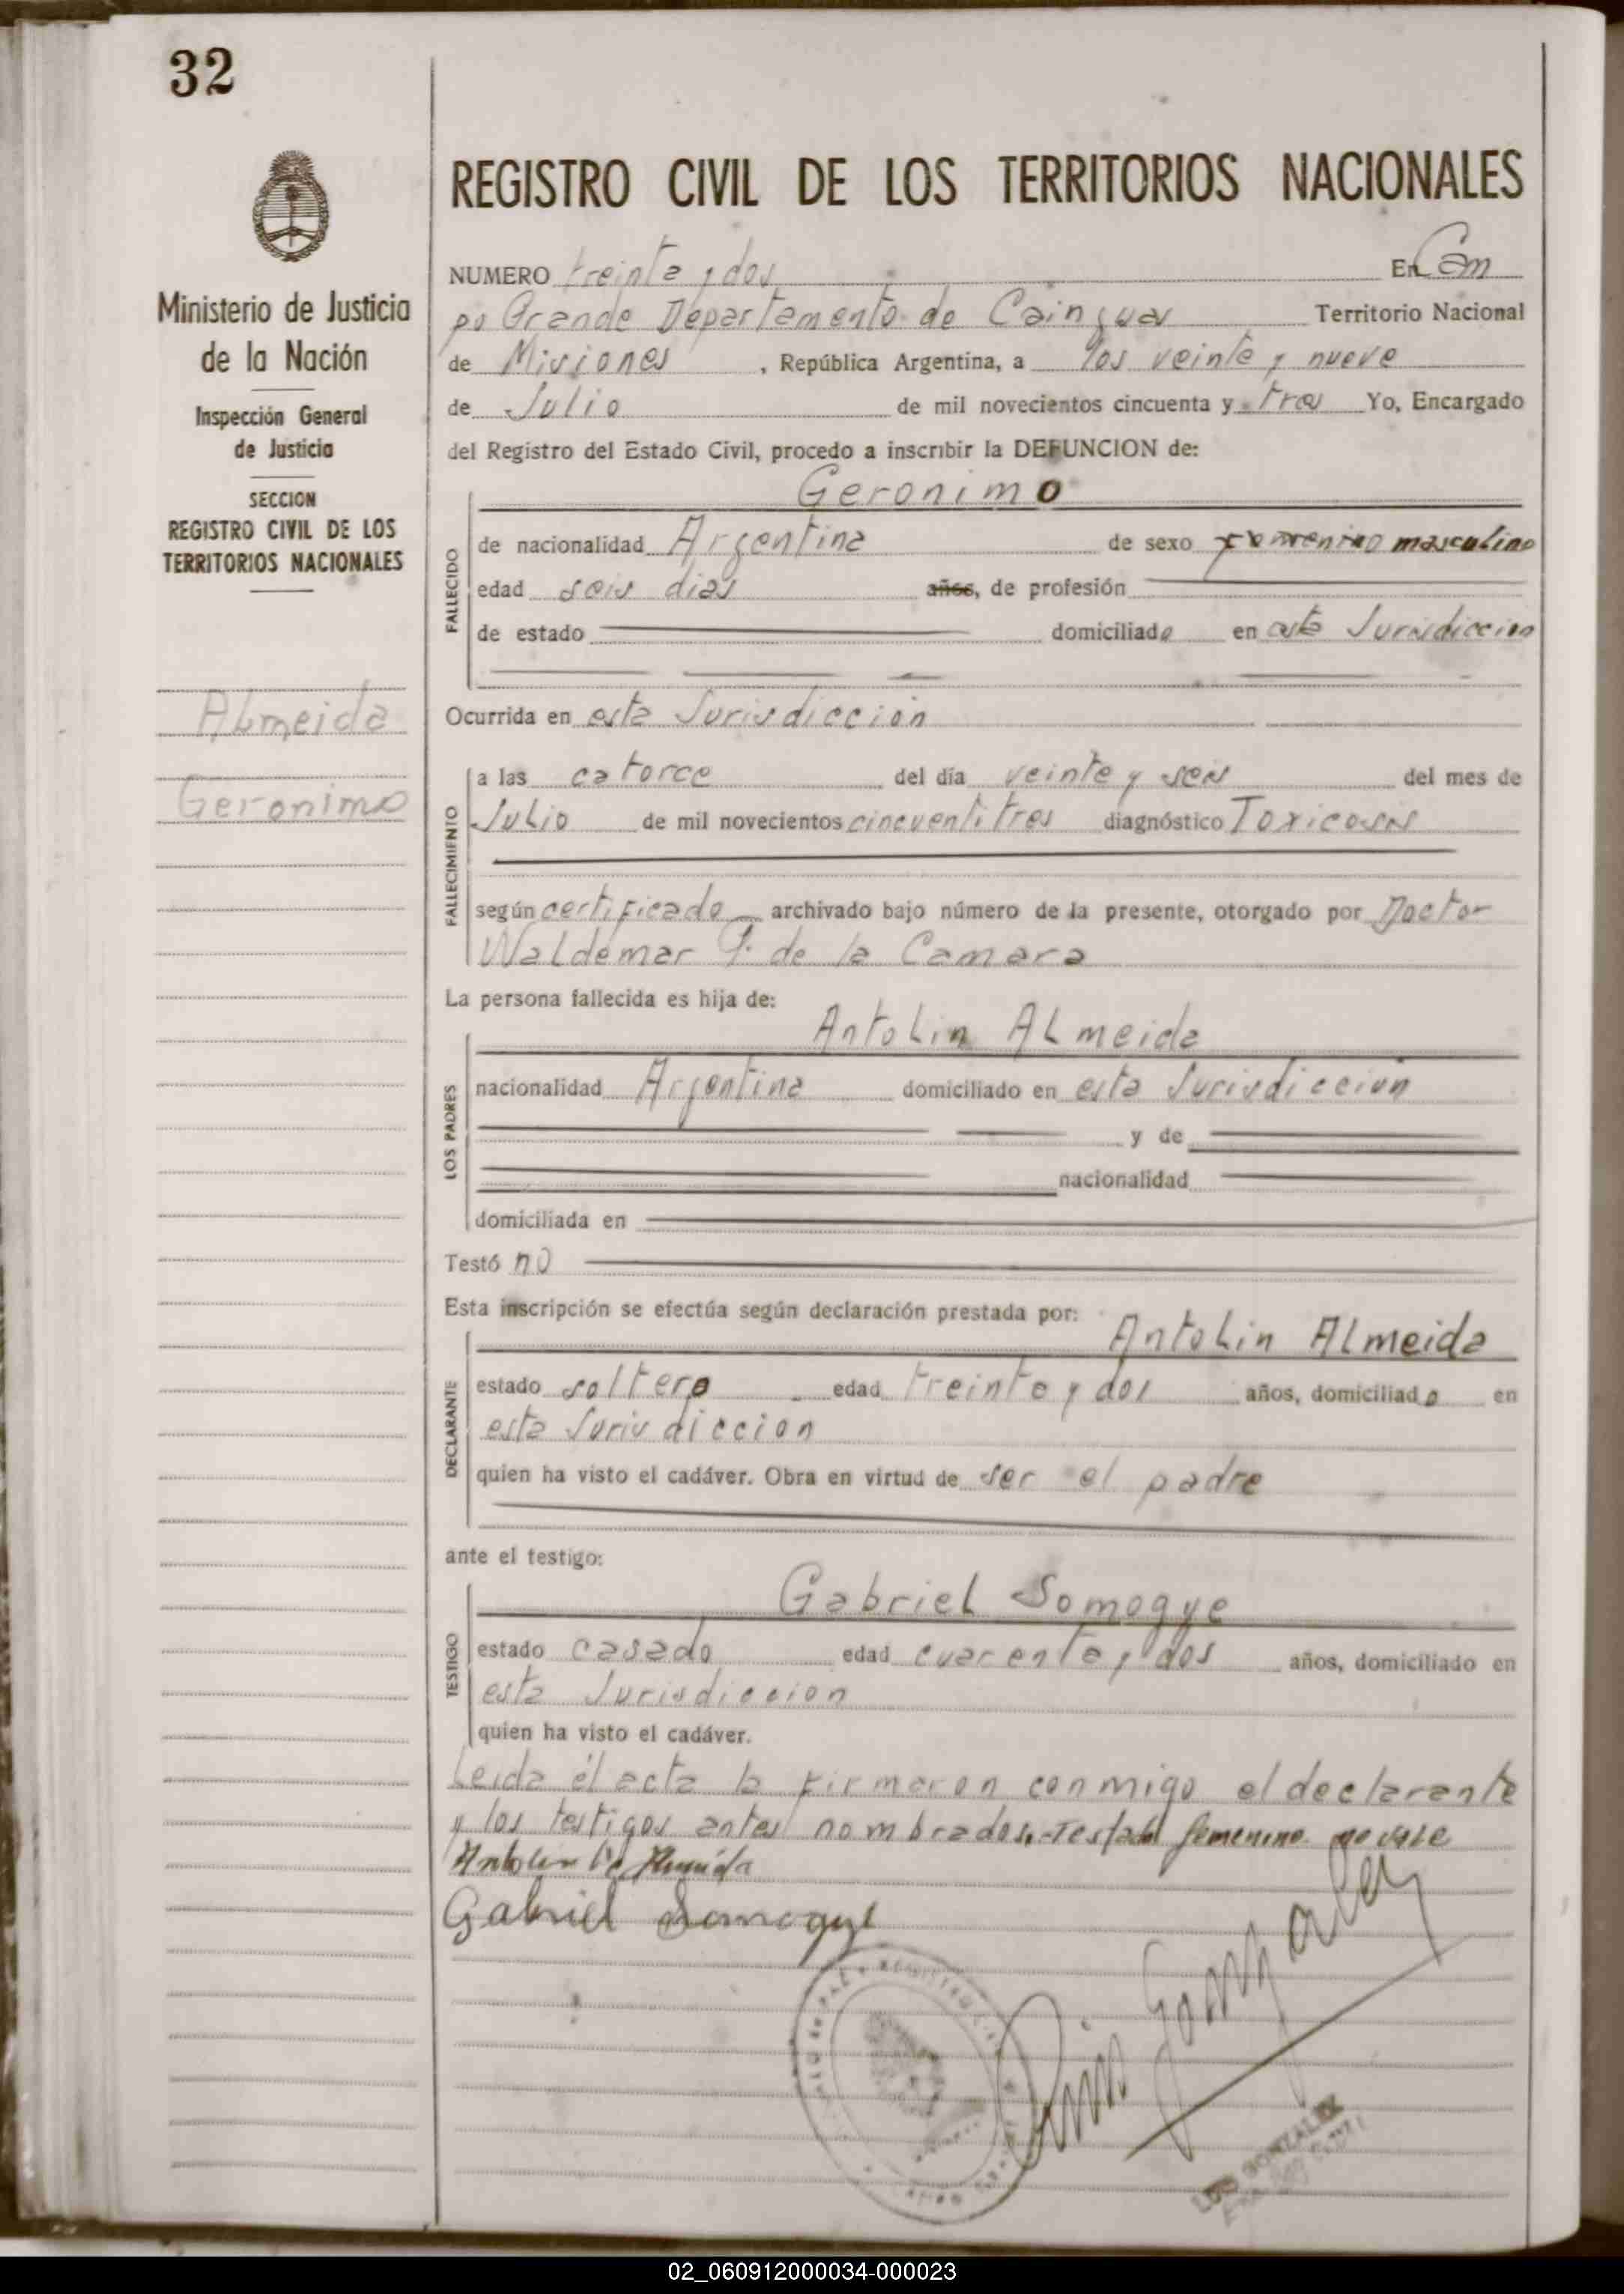 32
Ministerio de Justicia
de la Nación
Inspección General
de Justicia
SECCION
REGISTRO CIVIL DE LOS
TERRITORIOS NACIONALES
Almeida
Geronimo
REGISTRO CIVIL DE LOS TERRITORIOS NACIONALES
NUMERO treinta y dos En Cam
po Grande Departamento de Cainguas Territorio Nacional
de Misiones, República Argentina, a los veinte y nueve
de Julio de mil novecientos cincuenta y tres Yo, Encargado
del Registro del Estado Civil, procedo a inscribir la DEFUNCION de:
Geronimo
FALLECIDO
de nacionalidad Argentina de sexo femenino masculino
edad seis dias años, de profesión
de estado domiciliado en esta Jurisdiccion
Ocurrida en esta Jurisdiccion
FALLECIMIENTO
a las catorce del día veinte y seis del mes de
Julio de mil novecientos cincuentitres diagnóstico Toxicosis
según certificado archivado bajo número de la presente, otorgado por Doctor
Waldemar de la Camara
La persona fallecida es hija de:
Antolin ALmeida
LOS PADRES
nacionalidad Argentina domiciliado en esta Jurisdiccion
y de
nacionalidad
domiciliada en
Testó no
Esta inscripción se efectúa según declaración prestada por:
Antolin ALmeida
DECLARANTE
estado soltero edad treinta y dos años, domiciliado en
esta Jurisdiccion
quien ha visto el cadáver. Obra en virtud de ser el padre
ante el testigo:
Gabriel Somogye
TESTIGO
estado casado edad cuarenta y dos años, domiciliado en
esta Jurisdiccion
quien ha visto el cadáver.
Leida el acta la firmaron conmigo el declarante
y los testigos antes nombrados.-Testado femenino no vale
Gabriel Somogye
Luis Gonzalez
LUIS GONZALEZ
02_060912000034-000023